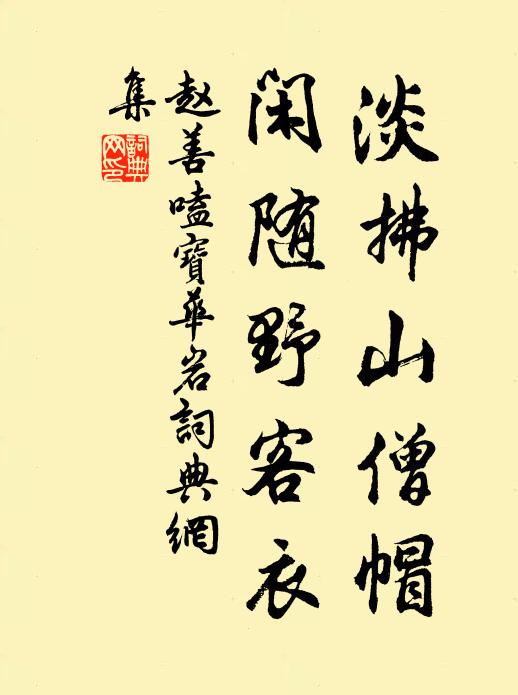 淡拂山僧帽
闲随野客衣
赵善嗑寶華岩詞典網
集
詞典
网印